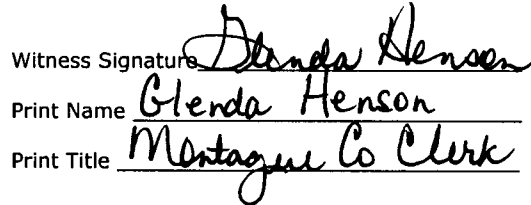 Witness Signature Glenda Henson
Print Name Glenda Henson
Print Title Montague Co Clerk